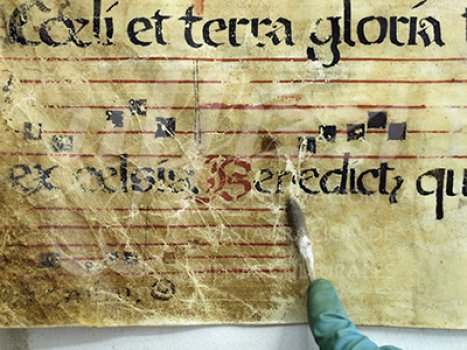 Cœli et terra gloria
ex celsis. Benedict, qu